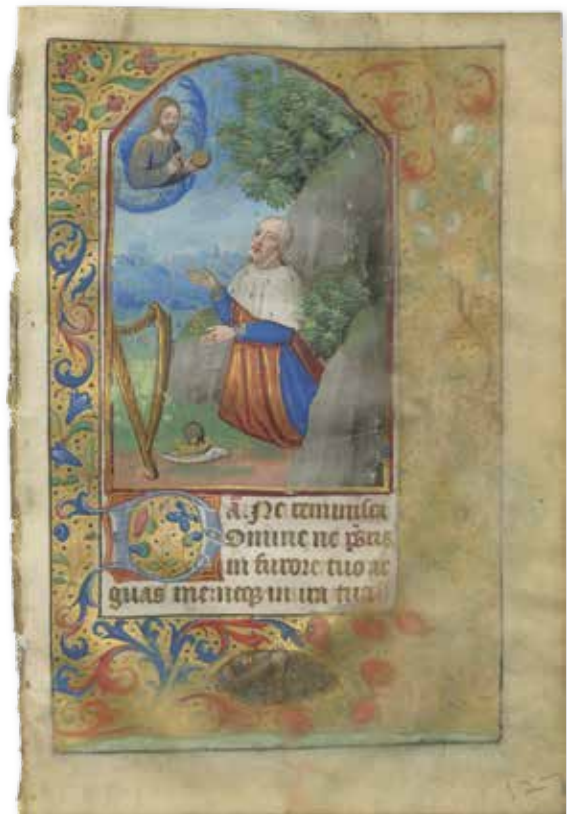 a. Ne reminisca
Domine ne p̄ctis
in furore tuo ar
guas me neq; in ira tua
127